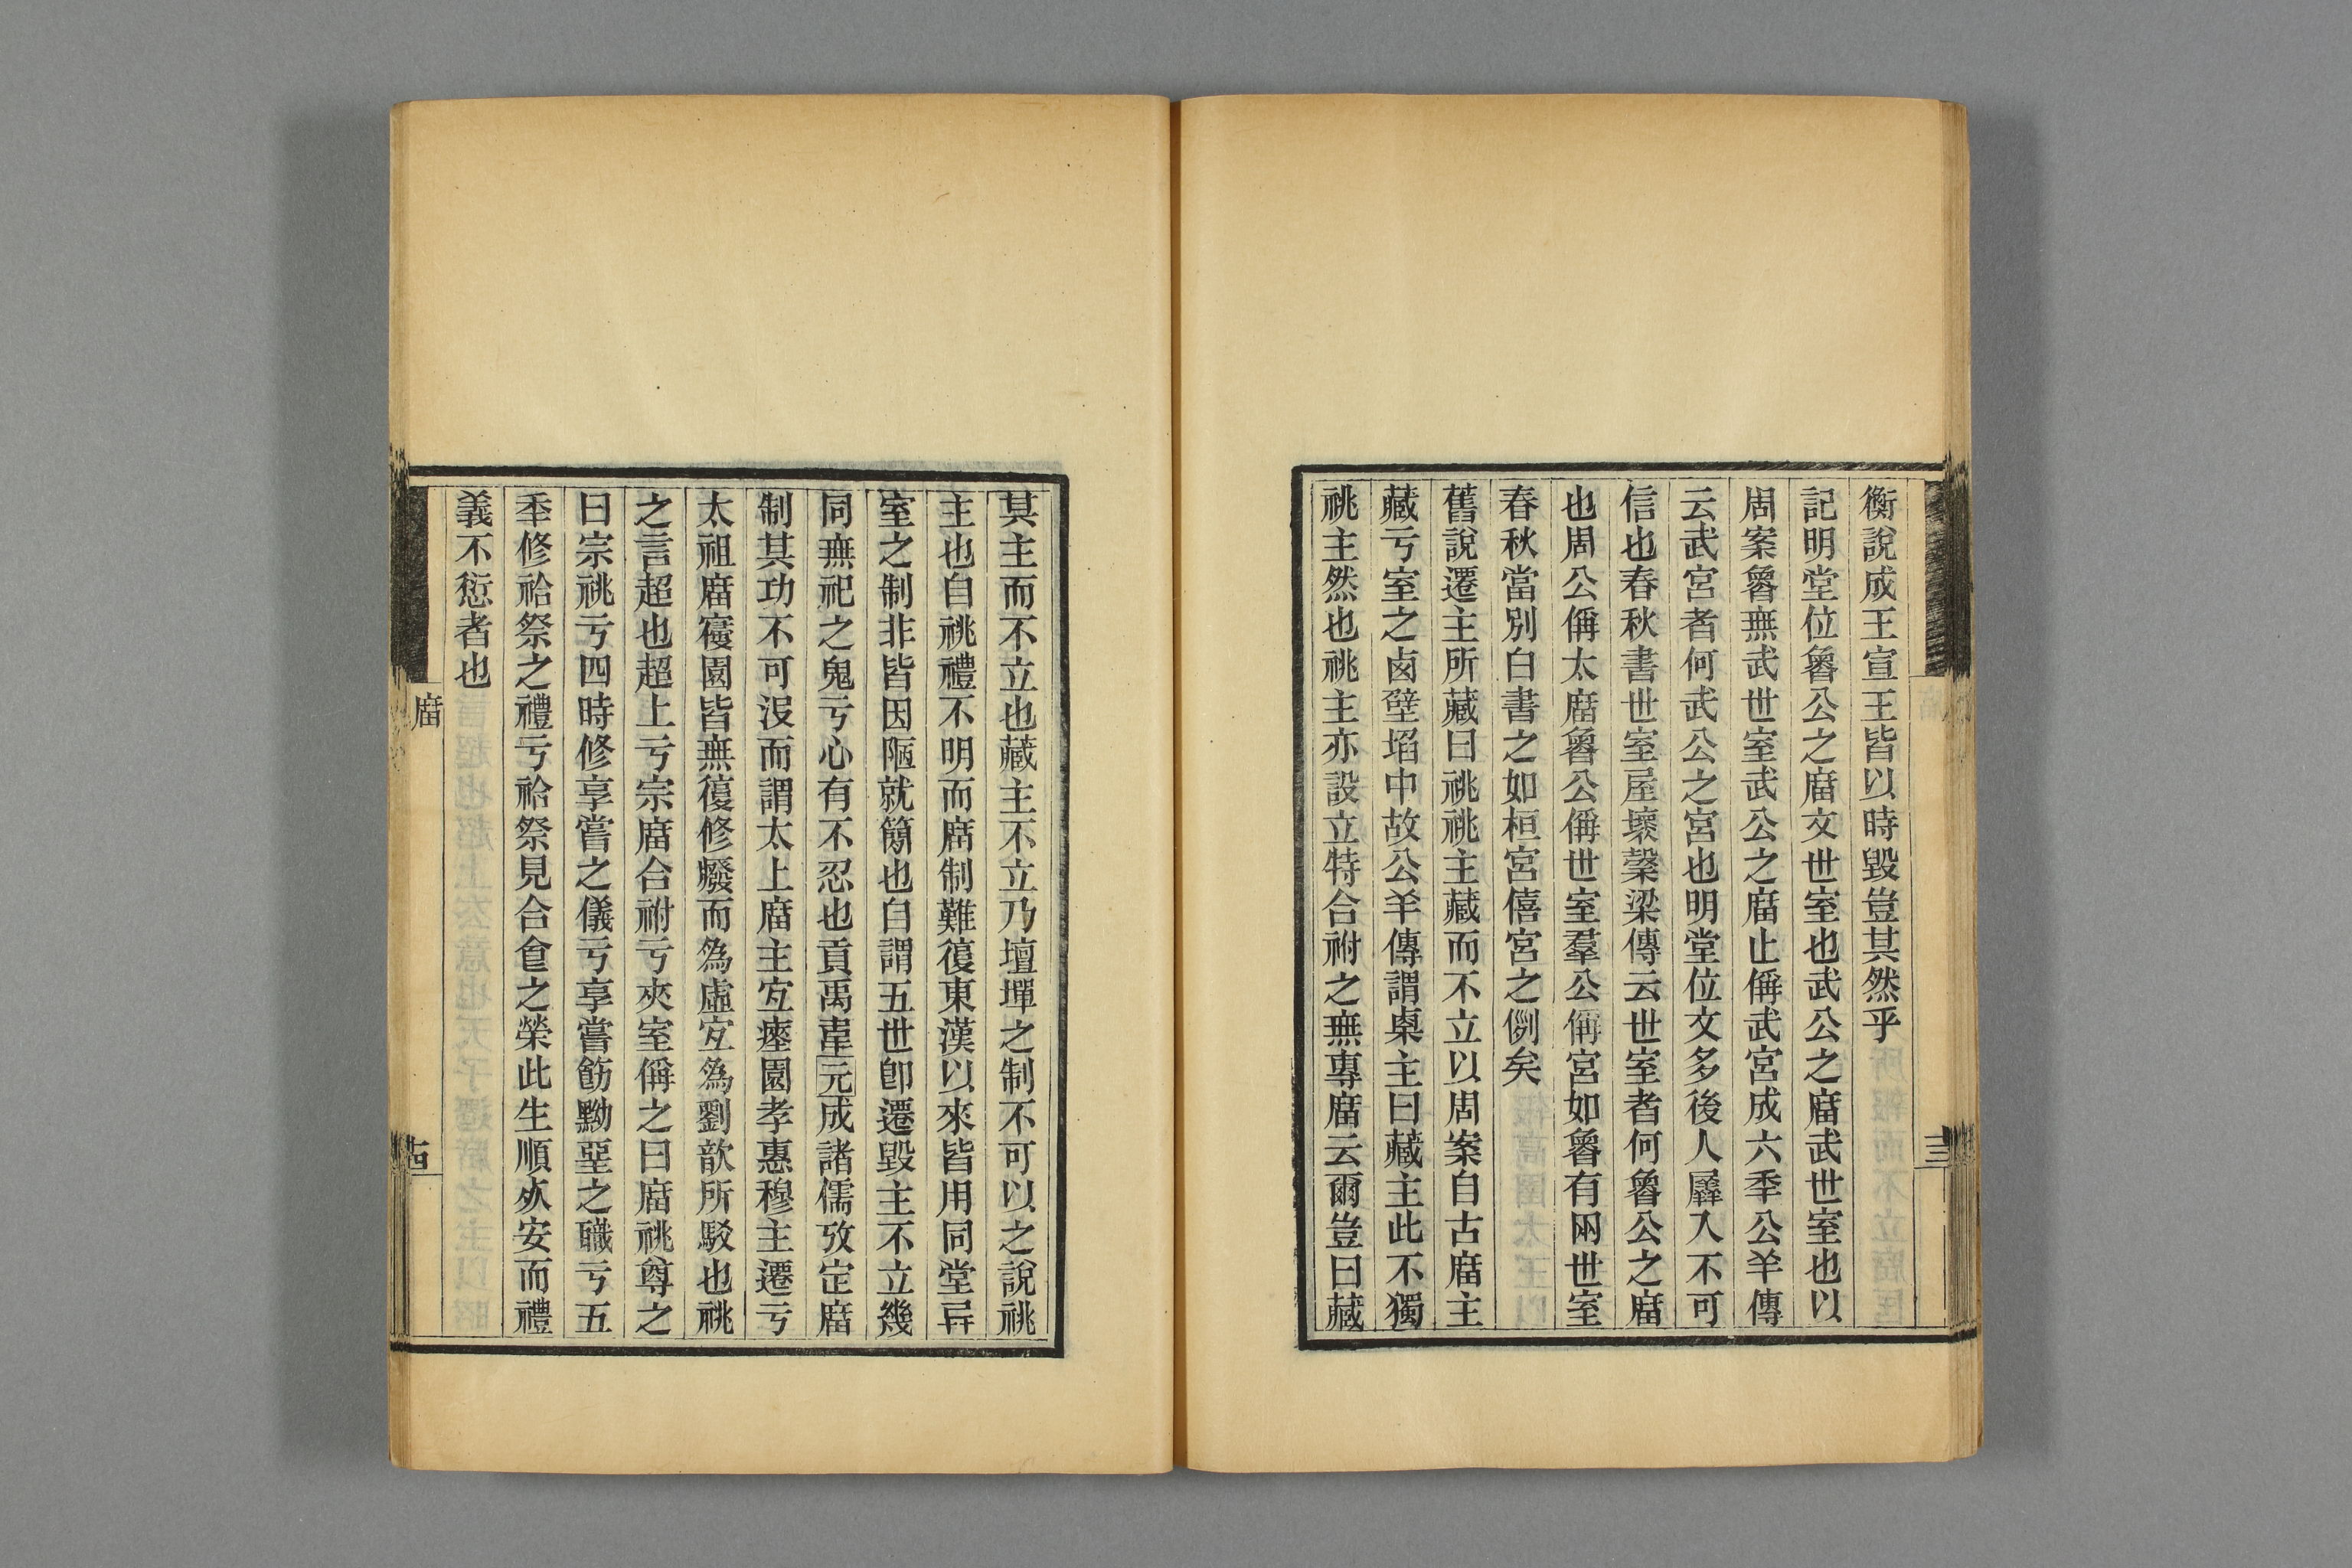 衡說成王宣王皆以時毀豈其然乎
記明堂位魯公之庿文世室也武公之庿武世室也以
周案魯無武世室武公之庿止偁武宮成六秊公羊傳
云武宮者何武公之宮也明堂位文多後人羼入不可
信也春秋書世室屋壞榖梁傳云世室者何魯公之庿
也周公偁太庿魯公偁世室羣公偁宮如魯有兩世室
春秋當別白書之如桓宮僖宮之例矣
舊說遷主所藏曰祧祧主藏而不立以周案自古庿主
藏亏室之卤壁埳中故公羊傳謂㮚主曰藏主此不獨
祧主然也祧主亦設立特合祔之無專庿云爾豈曰藏
十三
其主而不立也藏主不立乃壇墠之制不可以之說祧
主也自祧禮不明而庿制難復東漢以來皆用同堂异
室之制非皆因陋就簡也白謂五世卽遷毀主不立幾
同無祀之鬼亏心有不忍也貢禹韋元成諸儒攷定庿
制其功不可沒而謂太上庿主宐瘞園孝惠穆主遷亏
太祖庿寑園皆無復修癈而為虛宐為劉歆所駁也祧
之言超也超上亏宗庿合祔亏夾室偁之曰庿祧尊之
曰宗祧亏四時修享嘗之儀亏享嘗飭黝堊之職亏五
秊修祫祭之禮亏祫祭見合食之榮此生順歾安而禮
義不愆者也
庿
十四